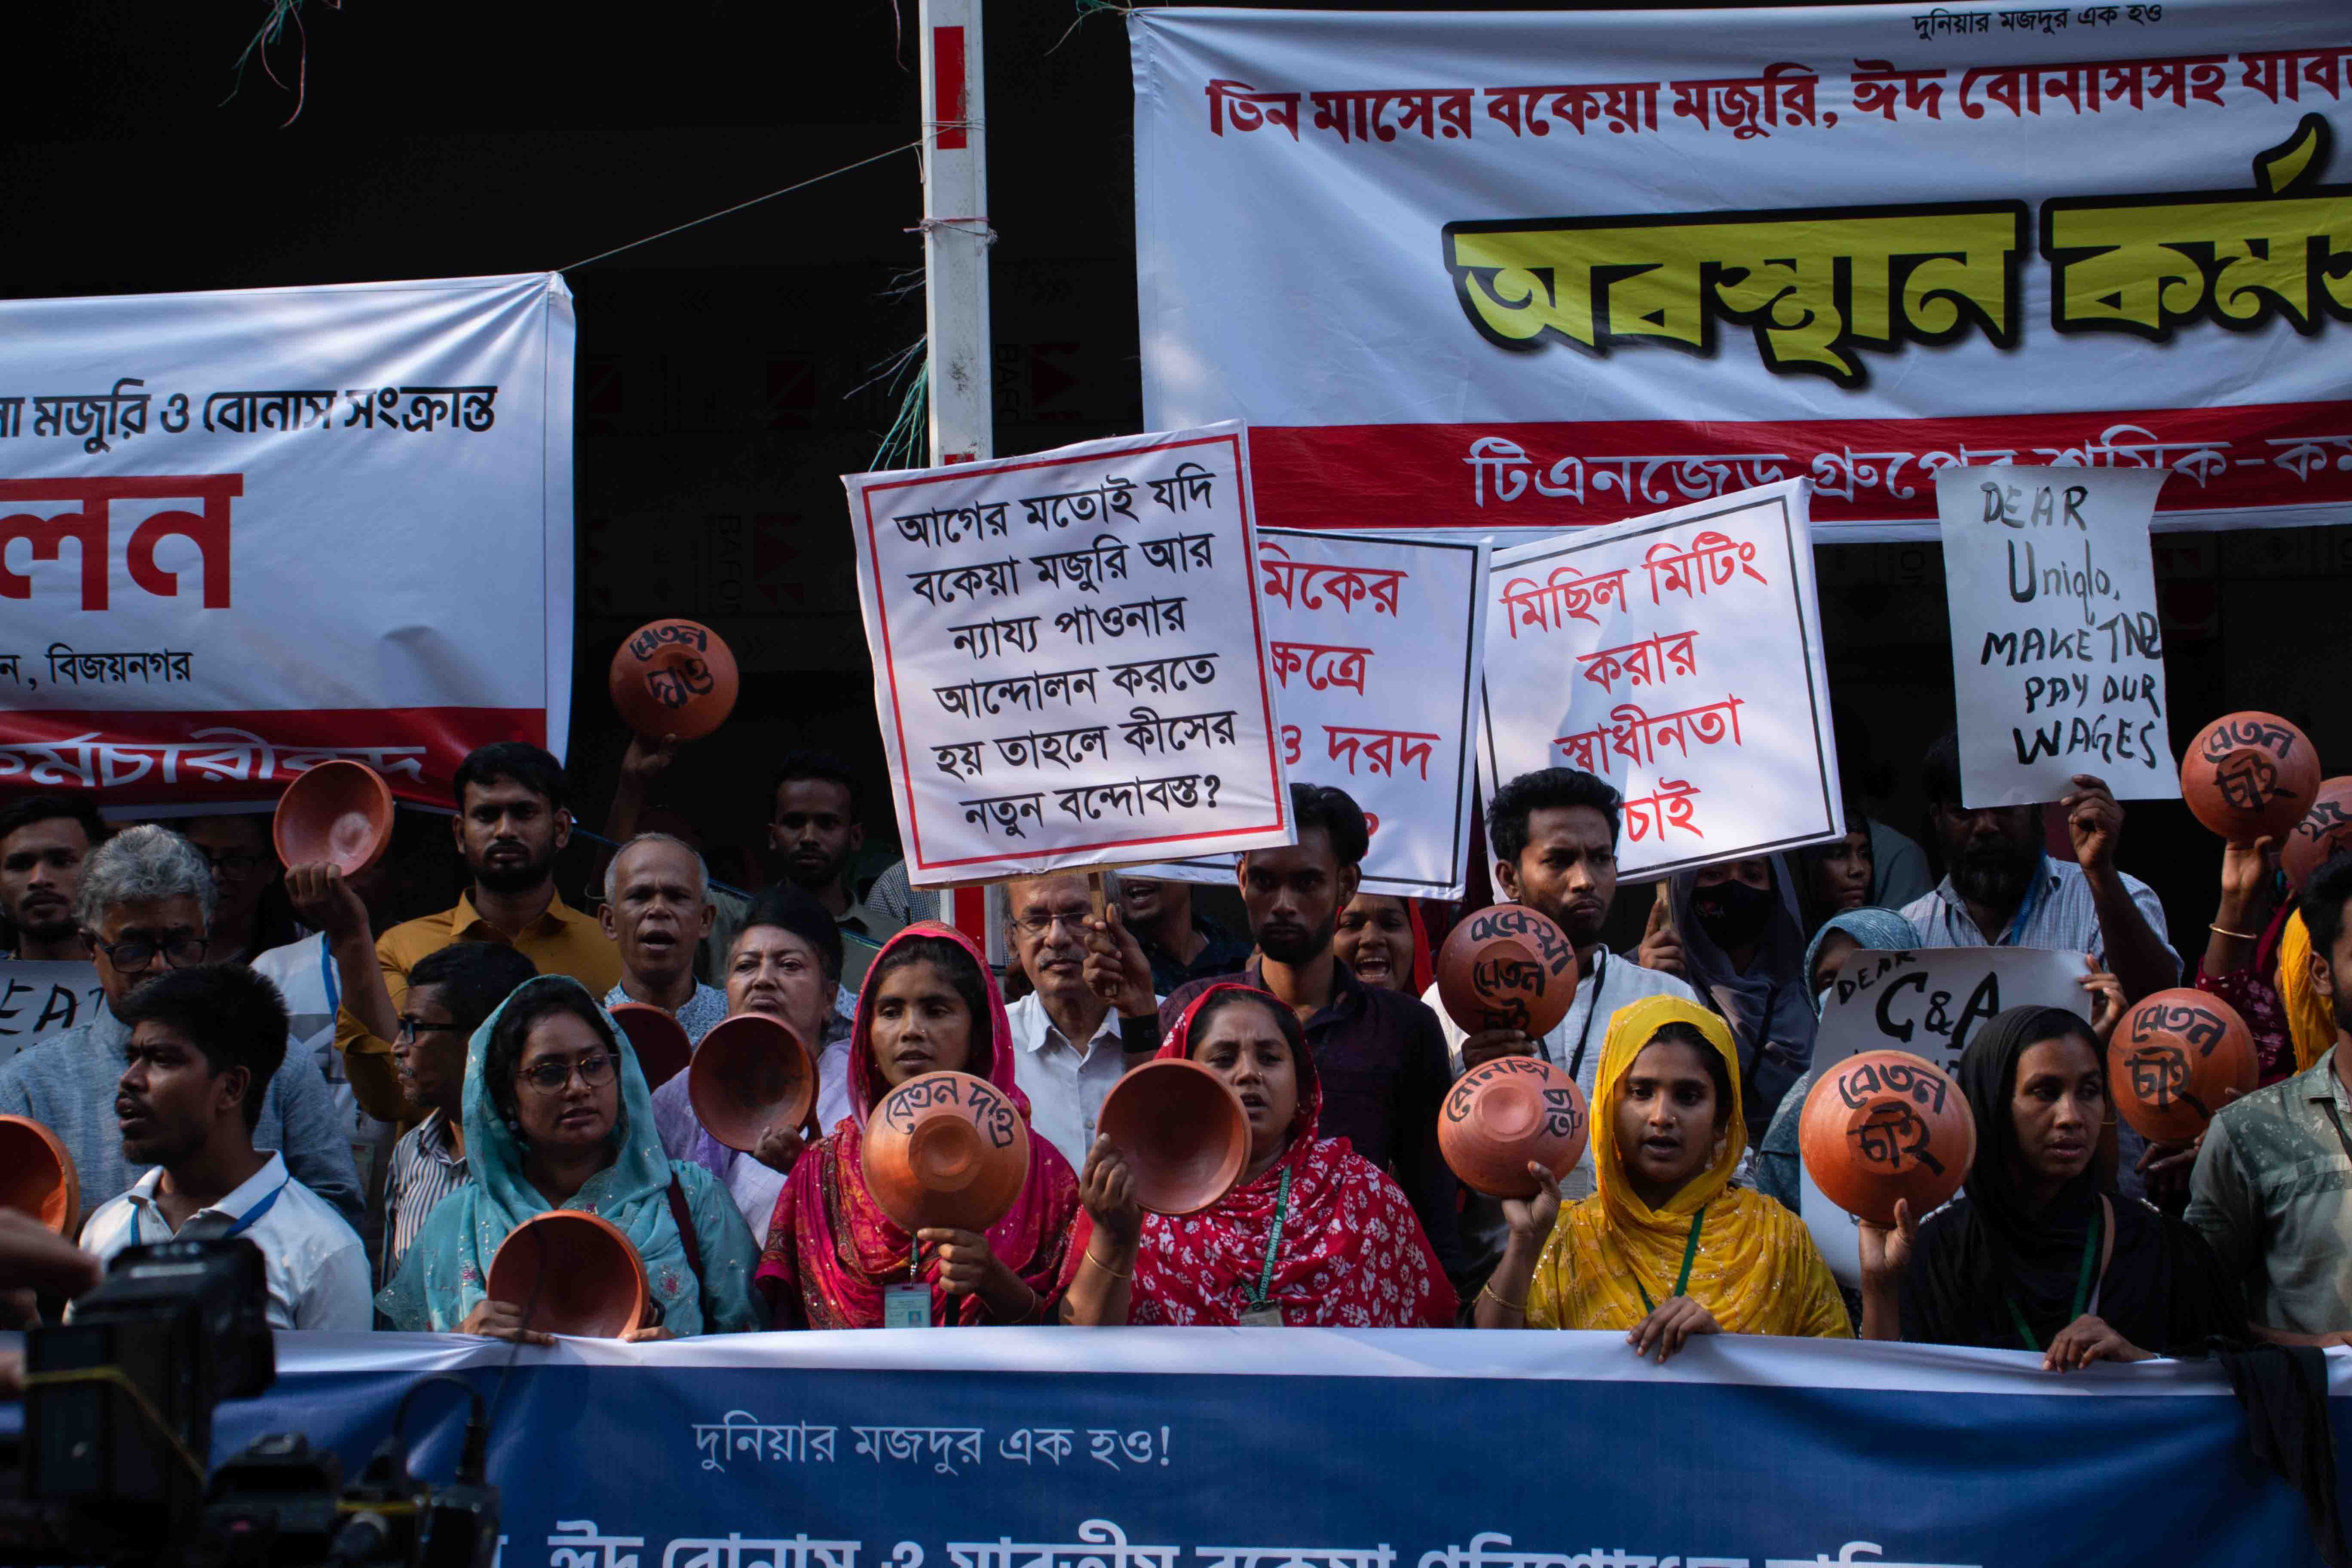 দুনিয়ার মজদুর এক হও
তিন মাসের বকেয়া মজুরি, ঈদ বোনাসসহ
অবস্থান
টিএনজেড গ্রুপের শ্রমিক-
মজুরি ও বোনাস সংক্রান্ত
বিজয়নগর
আগের মতোই যদি
বকেয়া মজুরি আর
ন্যায্য পাওনার
আন্দোলন করতে
হয় তাহলে কীসের
নতুন বন্দোবস্ত?
মিকের
ক্ষেত্রে
ও দরদ
মিছিল মিটিং
করার
স্বাধীনতা
চাই
DEAR
Uniqlo,
MAKE TNZ
PAY OUR
WAGES
বেতন
দাও
বেতন
চাই
বকেয়া
বেতন
DEAR
C&A
বেতন দাও
বোনাস চাই
বেতন
চাই
বেতন
চাই
দুনিয়ার মজদুর এক হও!
ঈদ বোনাস ও যাবতীয় বকেয়া পরিশোধের